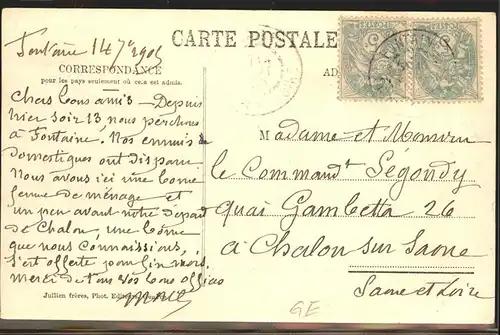 Fontaine 14 7bre 1905
CARTE POSTALE
CORRESPONDANCE
pour les pays seulement où cela est admis.
AD
Chers bons amis — Depuis
hier soir 13 nous perchons
à Fontaine. Nos ennuis de
domestiques ont disparu
Nous avons ici une bonne
femme de ménage et
un peu avant notre départ
de Chalon, une bonne
que nous connaissions,
s'est offerte pour fin mois.
Merci de tous vos bons offices
Jullien frères, Phot. Editeurs
Madame et Monsieur
le Commandt Ségondy
quai Gambetta 26
à Chalon sur Saone
Saone et Loire
GE